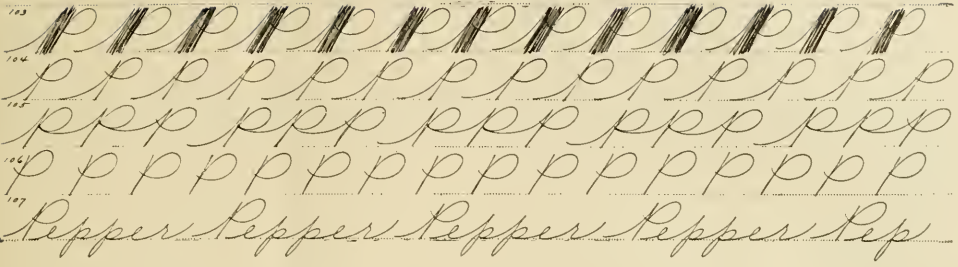 103 P P P P P P P P P P P P P
104 P P P P P P P P P P P P P P P
105 P P P P P P P P P P P P P P P
106 P P P P P P P P P P P P P P P P
107 Pepper Pepper Pepper Pepper Pep